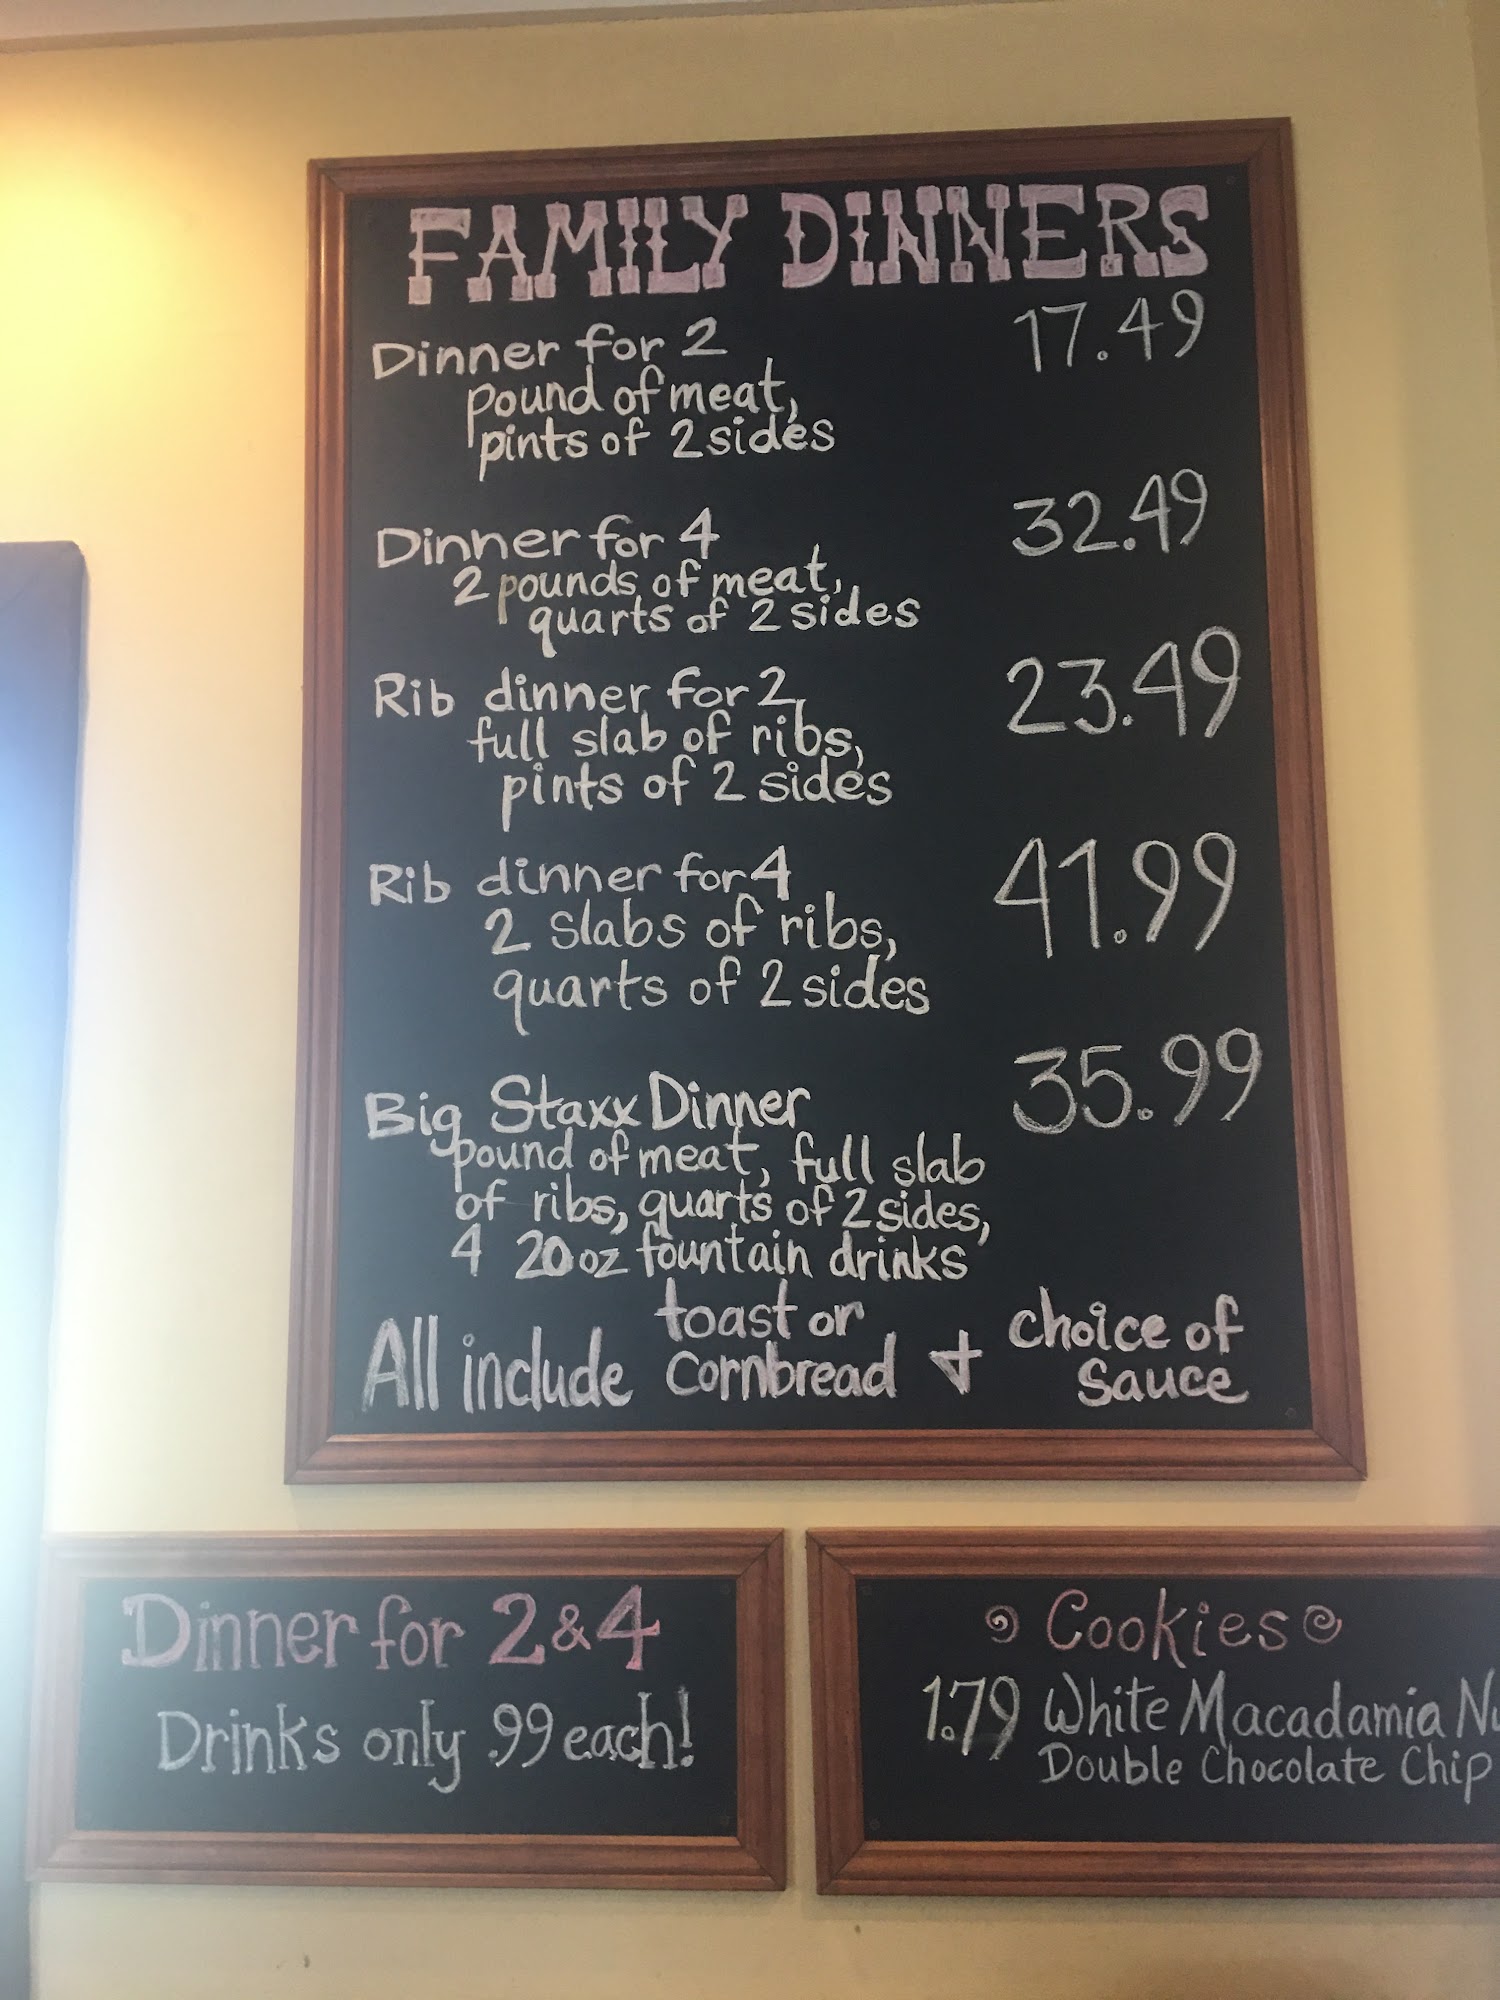 FAMILY DINNERS
Dinner for 2 17.49
pound of meat,
pints of 2 sides
Dinner for 4 32.49
2 pounds of meat,
quarts of 2 sides
Rib dinner for 2 23.49
full slab of ribs,
pints of 2 sides
Rib dinner for 4 41.99
2 slabs of ribs,
quarts of 2 sides
Big Staxx Dinner 35.99
pound of meat, full slab
of ribs, quarts of 2 sides,
4 20 oz fountain drinks
All include toast or cornbread + choice of sauce
Dinner for 2 & 4
Drinks only .99 each!
Cookies
1.79 White Macadamia
Double Chocolate Chip